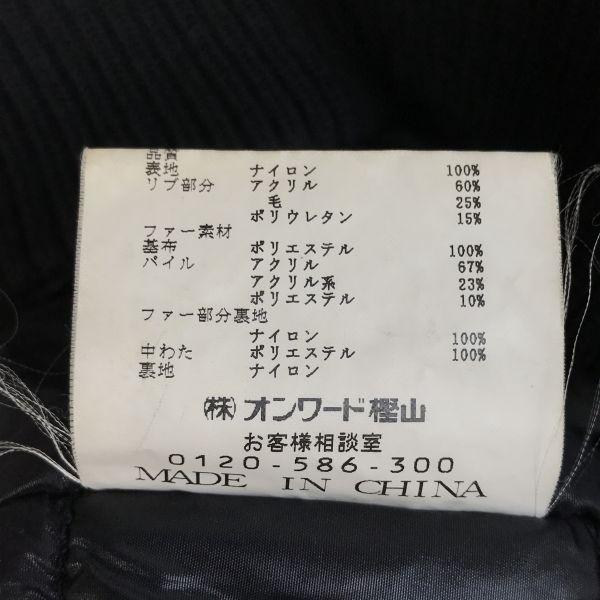 品質
表地 ナイロン 100%
リブ部分 アクリル 60%
毛 25%
ポリウレタン 15%
ファー素材
基布 ポリエステル 100%
パイル アクリル 67%
アクリル系 23%
ポリエステル 10%
ファー部分裏地
ナイロン 100%
中わた ポリエステル 100%
裏地 ナイロン
㈱オンワード樫山
お客様相談室
0120-586-300
MADE IN CHINA